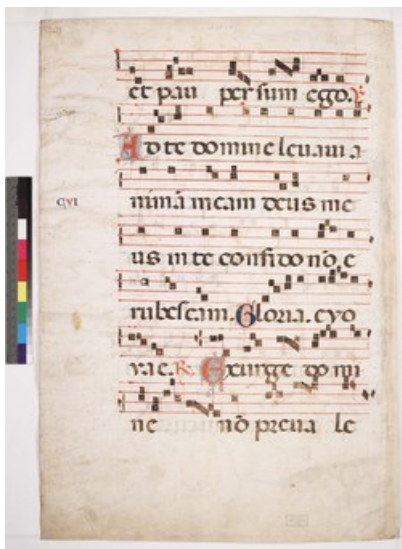 et pau per sum ego. V
Ad te domine leuaui a
nimã meam deus me
us in te confido nõ e
rubescam. Gloria. eyo
vae. R. Exurge domi
ne nõ preua le
cvi